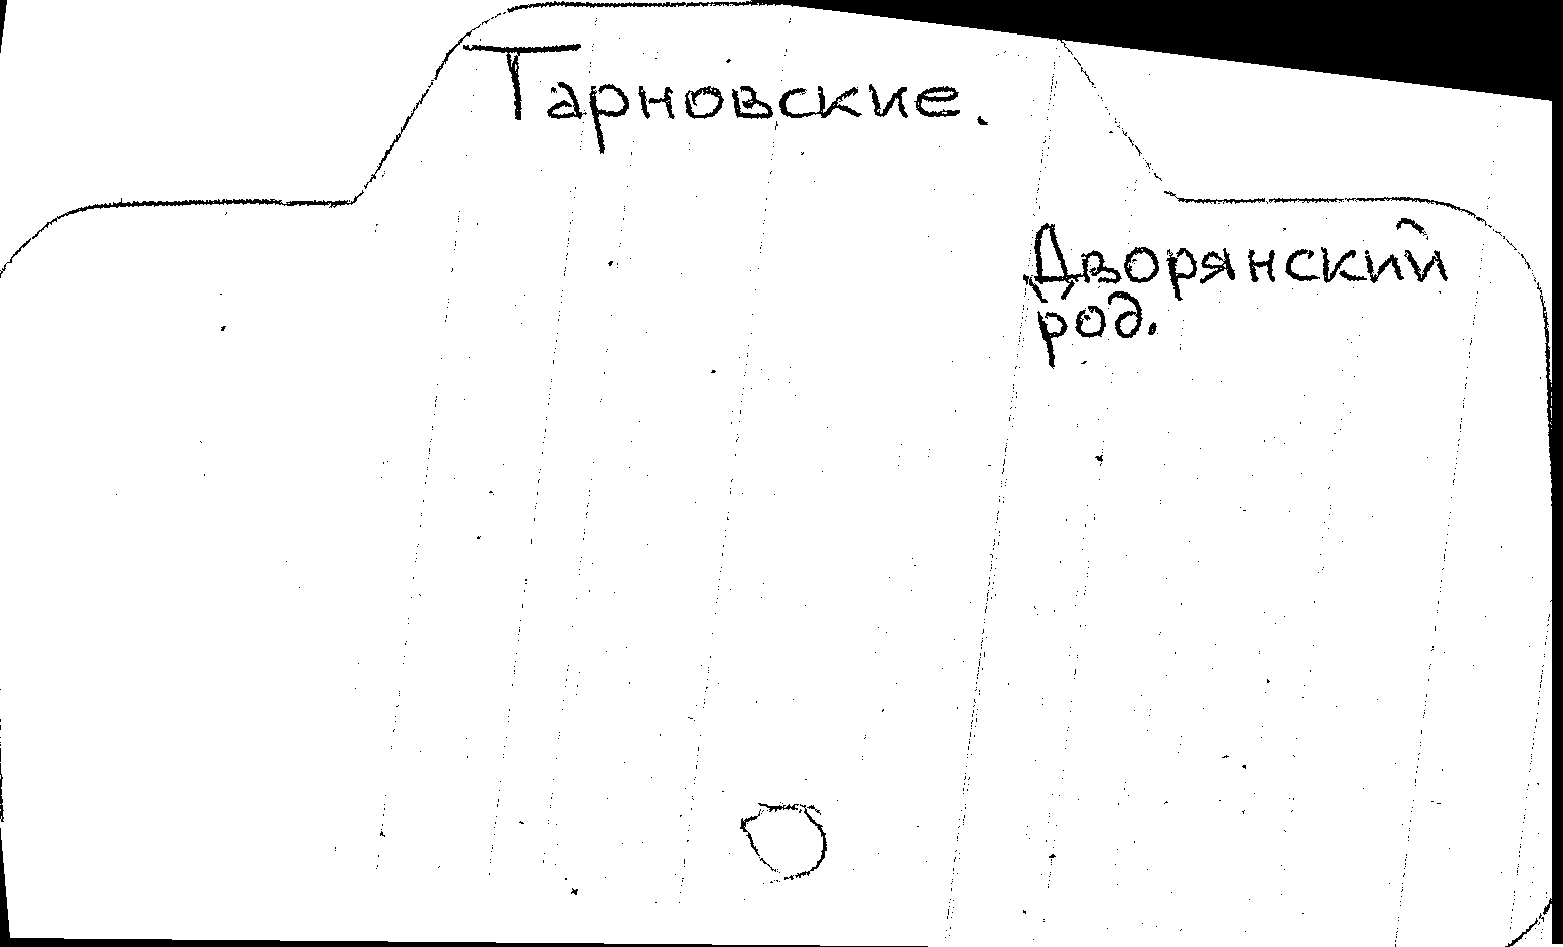 Тарновские.
Дворянский
род.